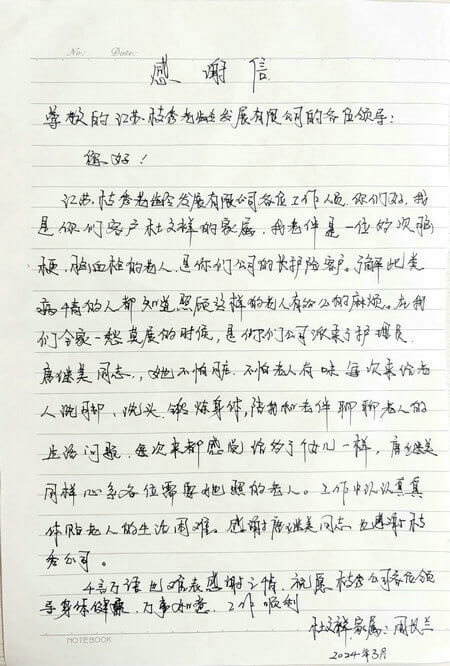 No: Date:
感谢信
尊敬的江苏桂秀老龄产业发展有限公司的各位领导:
您好!
江苏桂秀老龄产业发展有限公司各位工作人员,你们好,我
是你们客户杜文祥的家属,我老伴是一位多次脑
梗,脑血栓的老人,是你们公司的长护险客户。了解此类
病情的人都知道照顾这样的老人有多么的麻烦。在我
们全家一愁莫展的时候,是你们公司派来了护理员
唐继美同志,她不怕脏、不怕老人有味每次来给老
人洗脚、洗头、锻炼身体,陪我和老伴聊聊老人的
生活问题,每次来都感觉给多了个女儿一样,唐继美
同样心系各位需要她照的老人。工作中认认真真
体贴老人的生活困难。感谢唐继美同志也感谢桂
秀公司。
千言万语也难表感谢之情,祝愿桂秀公司各位领
导身体健康,万事如意,工作顺利
杜文祥家属:周长兰
2024年3月
NOTEBOOK